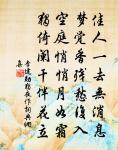 佳人一去無消息
夢覺香殘愁復入
空庭悄悄月如霜
獨倚闌干伴花立
李建勳獨夜作詞典網
集